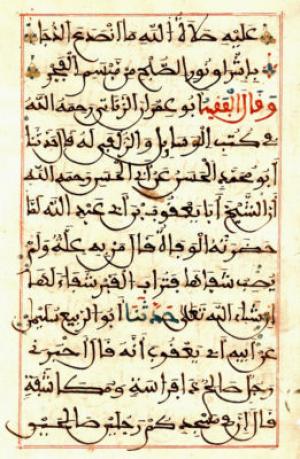 عليه صلاة الله ما انصدع الفجر
باشراو نور الصبح من مبتسم الفجر
وقال الفقيه ابو عمران الزناتي رحمه الله
في كتب الوسايل والزلفى له قال حدثنا
ابو محمد الحسن عن ابي الحسن رحمه الله
ان الشيخ ابا يعقوب بن ابي عبد الله لما
حضرته الوفاة قال من به علة ولم
يصب شفاها فتراب القبر شفاء لها
ان شاء الله تعلى حدثنا ابو الربيع سليمن
عن ابيه ابي يعقوب انه قال اخبرني
رجل صالح ذو فراسة ومكاشفة
قال ان في مسجدكم رجلين صالحين